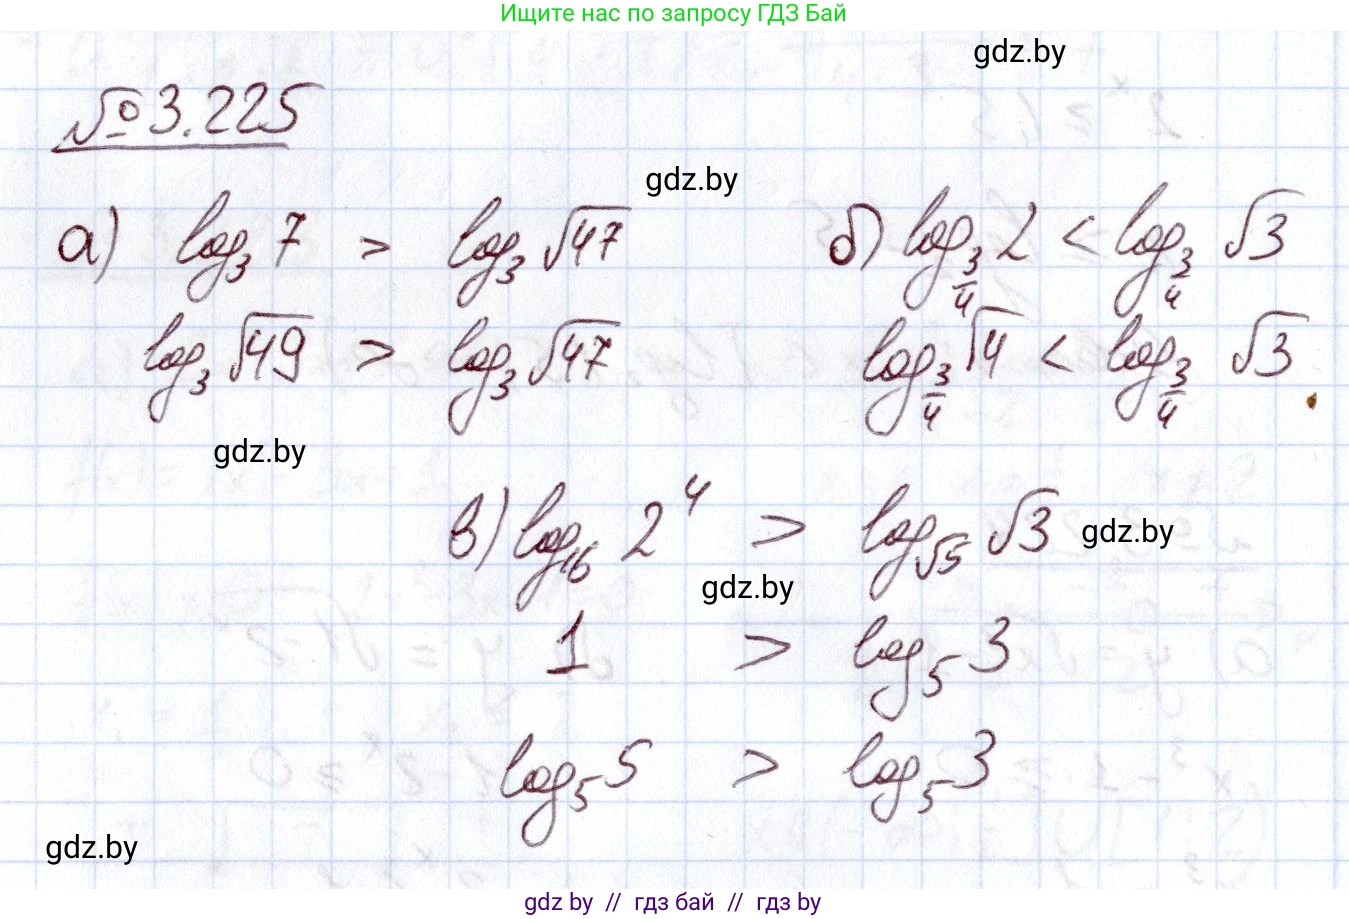 Ищите нас по запросу ГДЗ Бай
gdz.by
№ 3.225
gdz.by
а) log₃ 7 > log₃ √47
log₃ √49 > log₃ √47
б) log_{3/4} 2 < log_{3/4} √3
log_{3/4} √4 < log_{3/4} √3
gdz.by
в) log₁₆ 2⁴ > log_{√5} √3
gdz.by
gdz.by
1 > log₅ 3
log₅ 5 > log₅ 3
gdz.by
gdz.by // гдз бай // гдз by